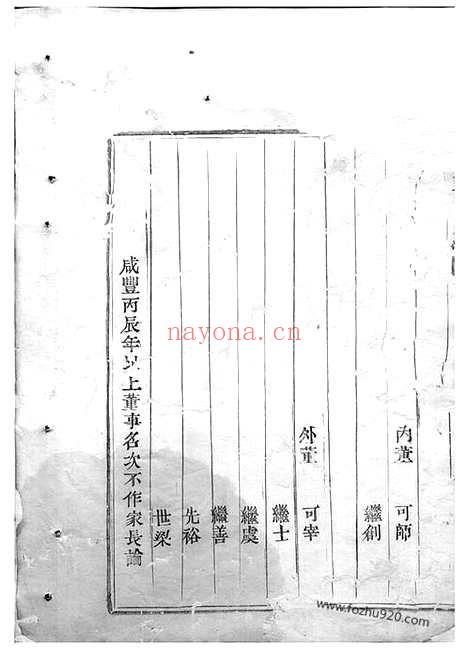 內董　可師
繼創
外董　可宰
繼士
繼虞
繼善
先裕
世梁
咸豐丙辰年以上董事名次不作家長論
nayona.cn
www.fozhu920.com